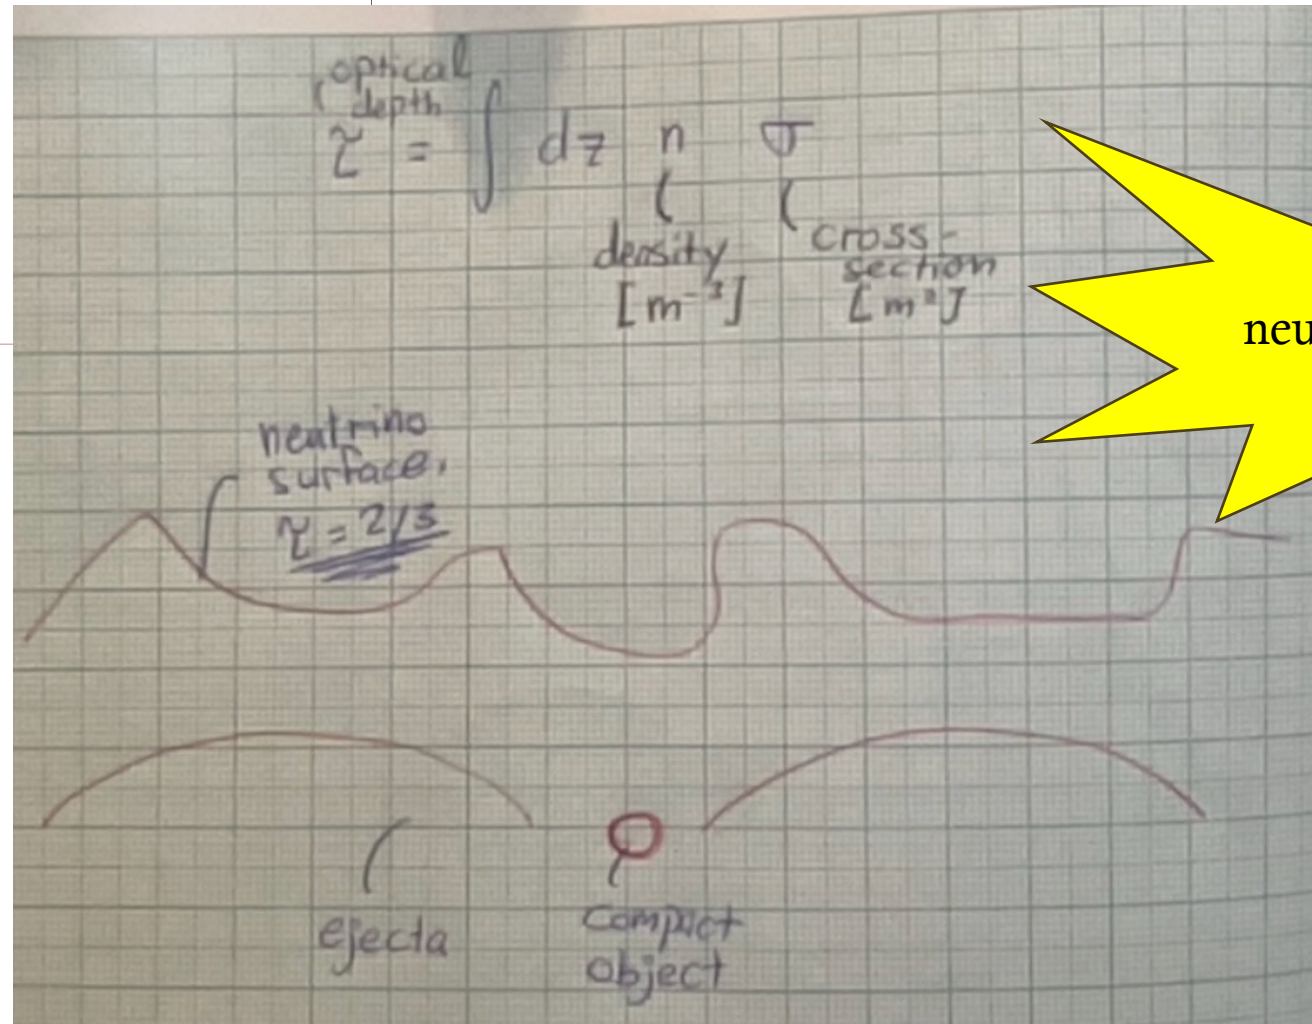 optical
depth
τ = ∫ dz n σ
density
[m⁻³]
cross-
section
[m²]
neu
neutrino
surface,
τ = 2/3
ejecta
compact
object